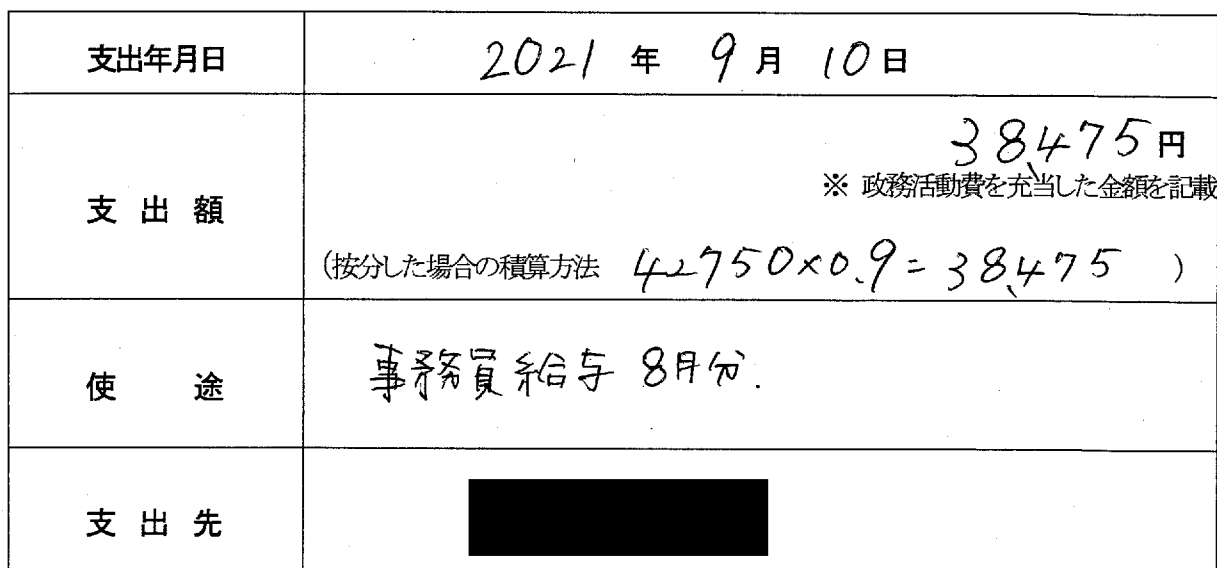 支出年月日 2021 年 9 月 10 日
38,475 円
※ 政務活動費を充当した金額を記載
支出額
(按分した場合の積算方法 42750×0.9=38,475 )
使途 事務員給与 8月分.
支出先